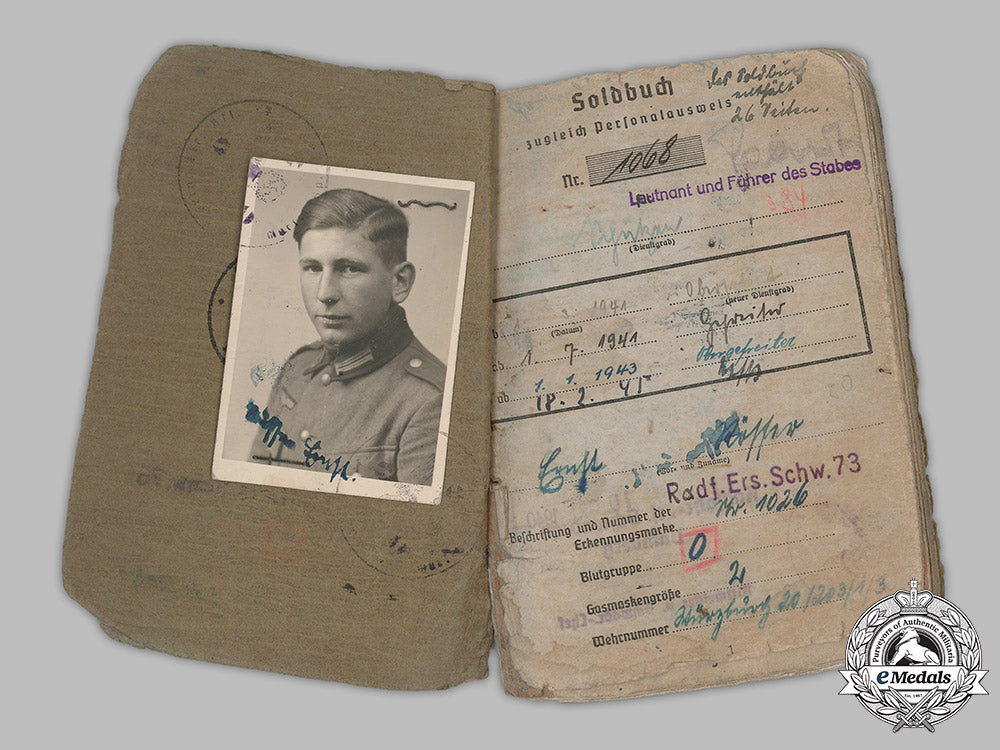 Soldbuch
zugleich Personalausweis
das Soldbuch
enthält
26 Seiten.
Nr. 1068
Leutnant und Führer des Stabes
S 84
Schützen
(Dienstgrad)
1941
(Datum)
(neuer Dienstgrad)
ab 1. 7. 1941 Gefreiter
ab 1. 1. 1943 Obergefreiter
18. 2. 45 Uffz
Ernst
(Vor- und Zuname)
Radf. Ers. Schw. 73
Beschriftung und Nummer der
Erkennungsmarke Nr. 1026
Blutgruppe 0
Gasmaskengröße 2
Wehrnummer Würzburg 20/203/1/3
1
Ernst.
Purveyors of Authentic Militaria
eMedals